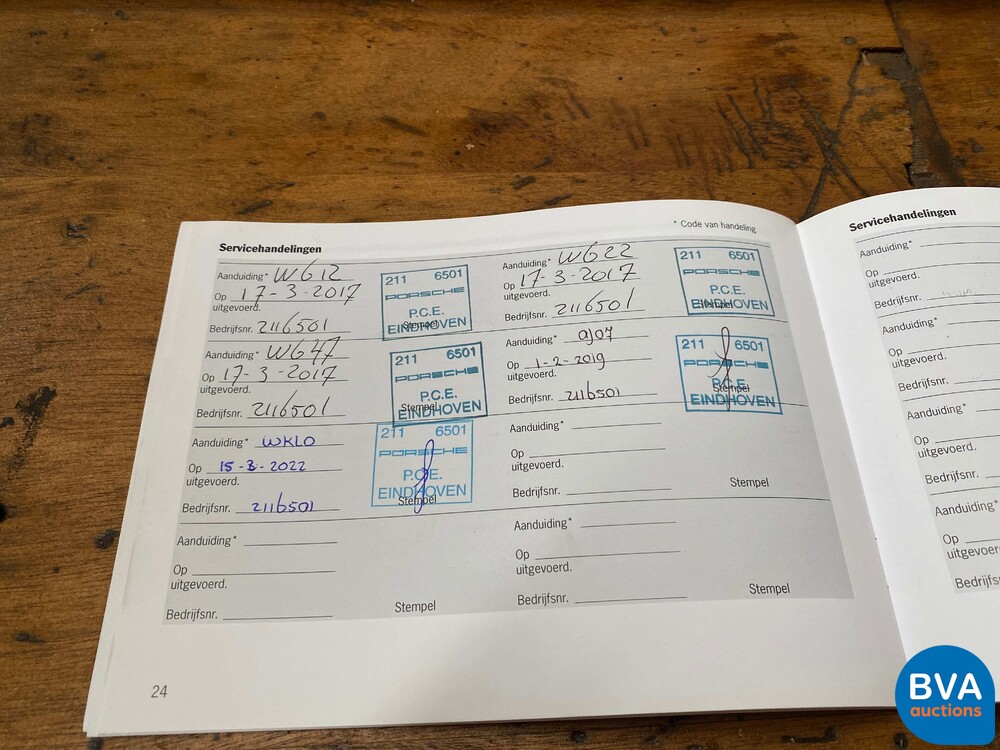 Servicehandelingen
* Code van handeling
Aanduiding* W612
Op 17-3-2017
uitgevoerd.
Bedrijfsnr. 2116501
211 6501
PORSCHE
P.C.E.
EINDHOVEN
Stempel
Aanduiding* W622
Op 17-3-2017
uitgevoerd.
Bedrijfsnr. 2116501
211 6501
PORSCHE
P.C.E.
EINDHOVEN
Stempel
Aanduiding* W647
Op 17-3-2017
uitgevoerd.
Bedrijfsnr. 2116501
211 6501
PORSCHE
P.C.E.
EINDHOVEN
Stempel
Aanduiding*
Op 1-2-2019
uitgevoerd.
Bedrijfsnr. 2116501
211 6501
PORSCHE
P.C.E.
EINDHOVEN
Stempel
Aanduiding* WKL0
Op 15-3-2022
uitgevoerd.
Bedrijfsnr. 2116501
211 6501
PORSCHE
P.C.E.
EINDHOVEN
Stempel
Aanduiding*
Op
uitgevoerd.
Bedrijfsnr.
Stempel
Aanduiding*
Op
uitgevoerd.
Bedrijfsnr.
Stempel
Aanduiding*
Op
uitgevoerd.
Bedrijfsnr.
Stempel
24
Servicehandelingen
Aanduiding*
Op
uitgevoerd.
Bedrijfsnr.
Aanduiding*
Op
uitgevoerd.
Bedrijfsnr.
Aanduiding*
Op
uitgevoerd.
Bedrijfsnr.
Aanduiding*
Op
BVA
auctions